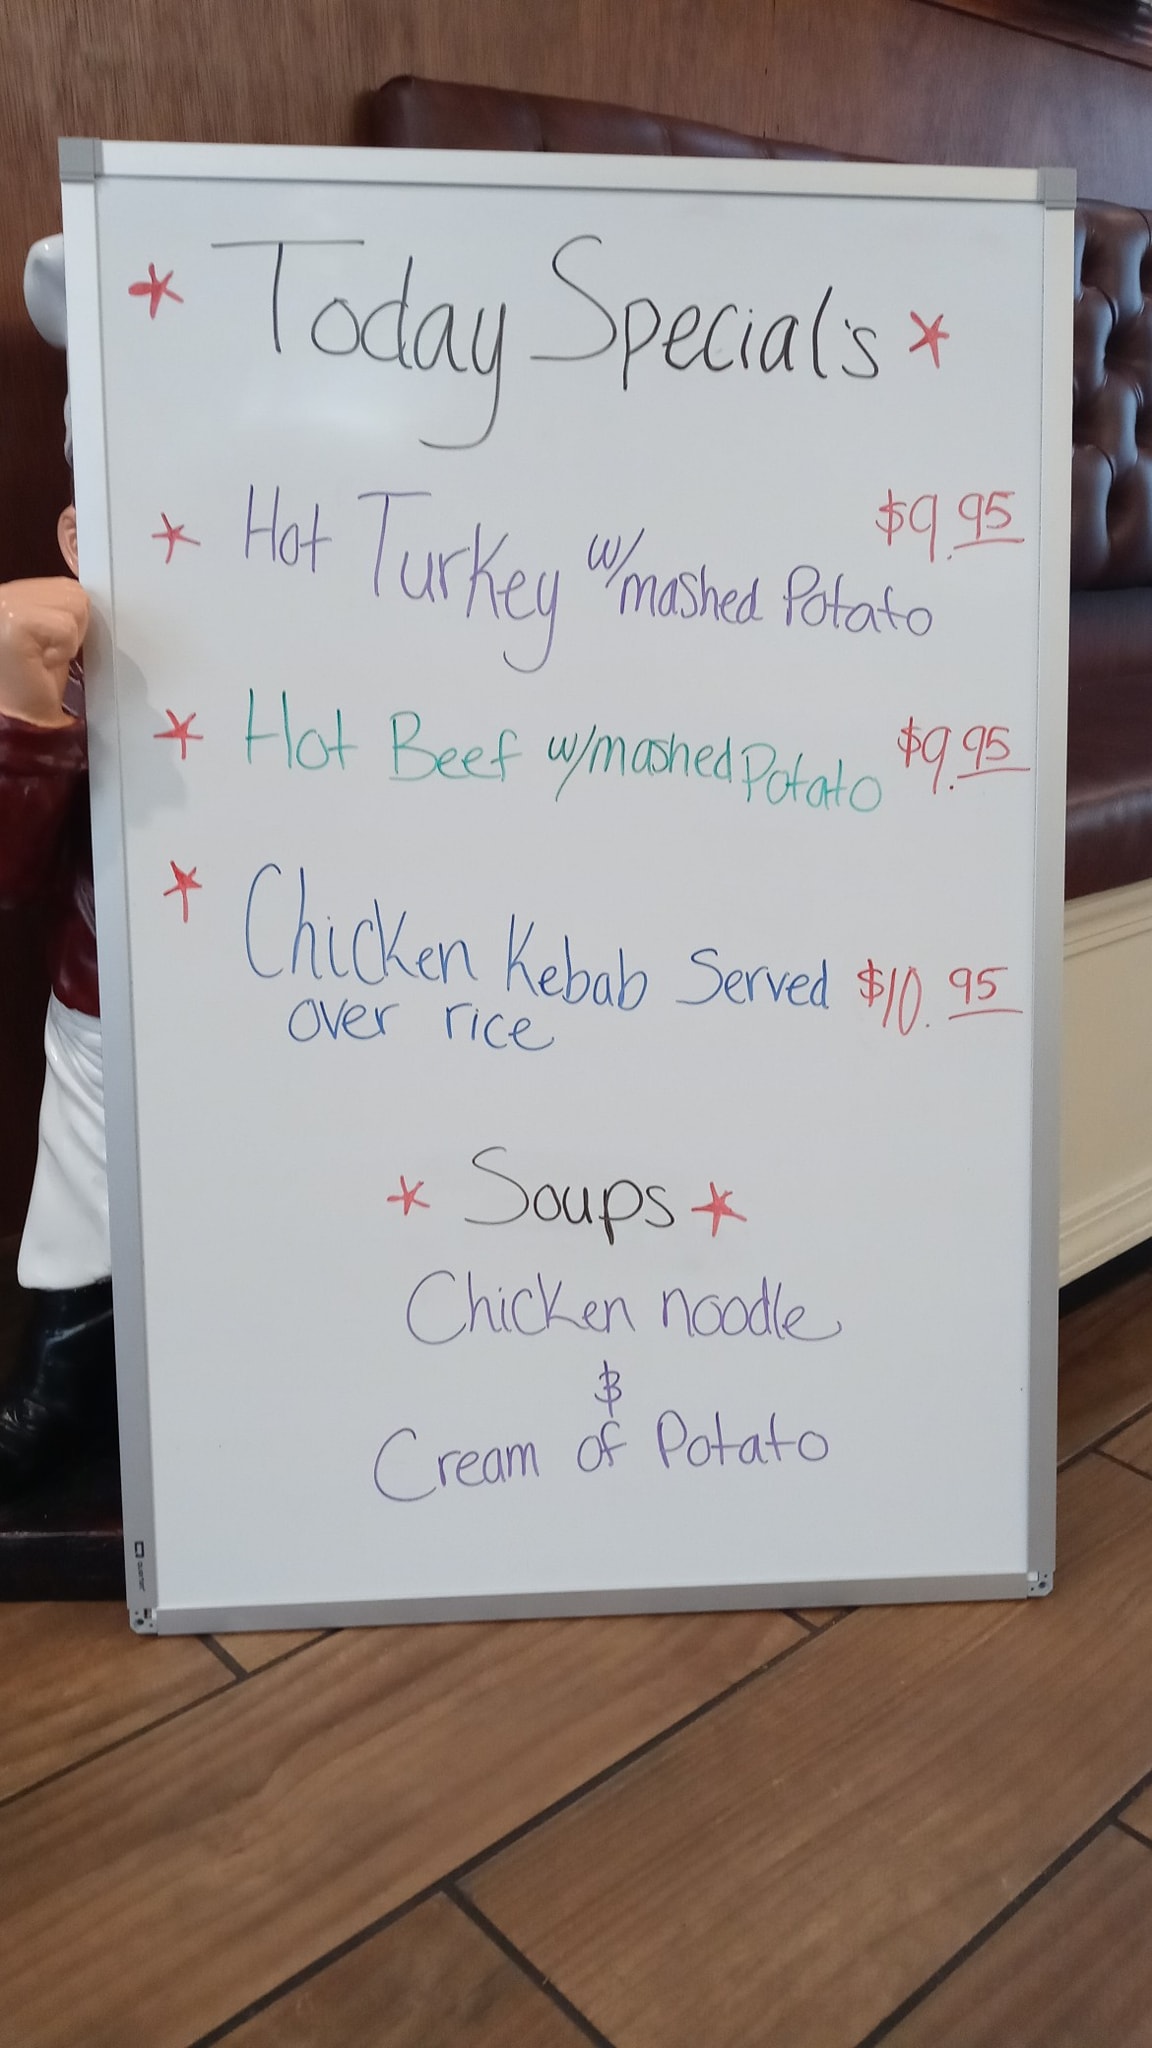 * Today Special's *
* Hot Turkey w/mashed Potato $9.95
* Hot Beef w/mashed Potato $9.95
* Chicken Kebab Served $10.95
over rice
* Soups *
Chicken noodle
&
Cream of Potato